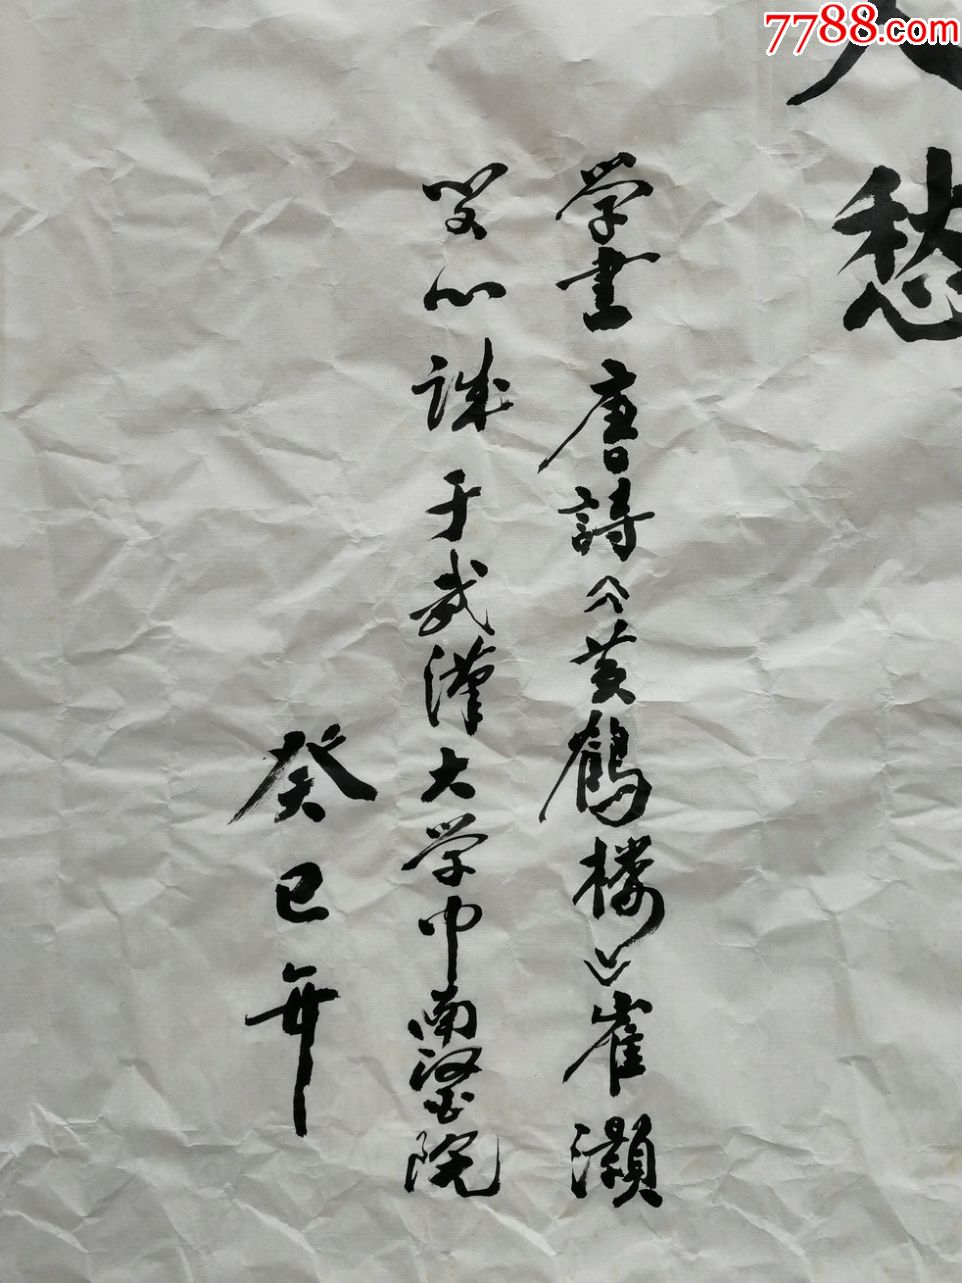 7788.com
人愁
学書唐詩《黄鶴楼》崔灝
心誠于武漢大学中南醫院
癸巳年